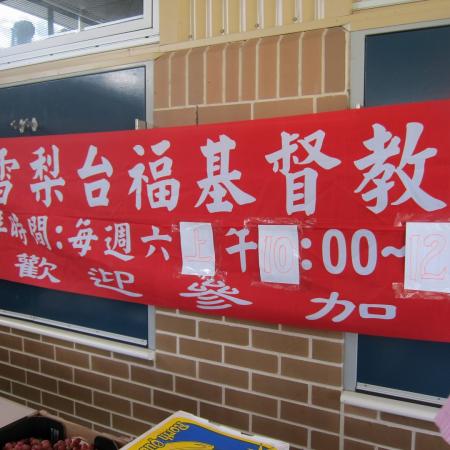 雪梨台福基督教
時間：每週六上午10：00~12
歡迎參加
North Que